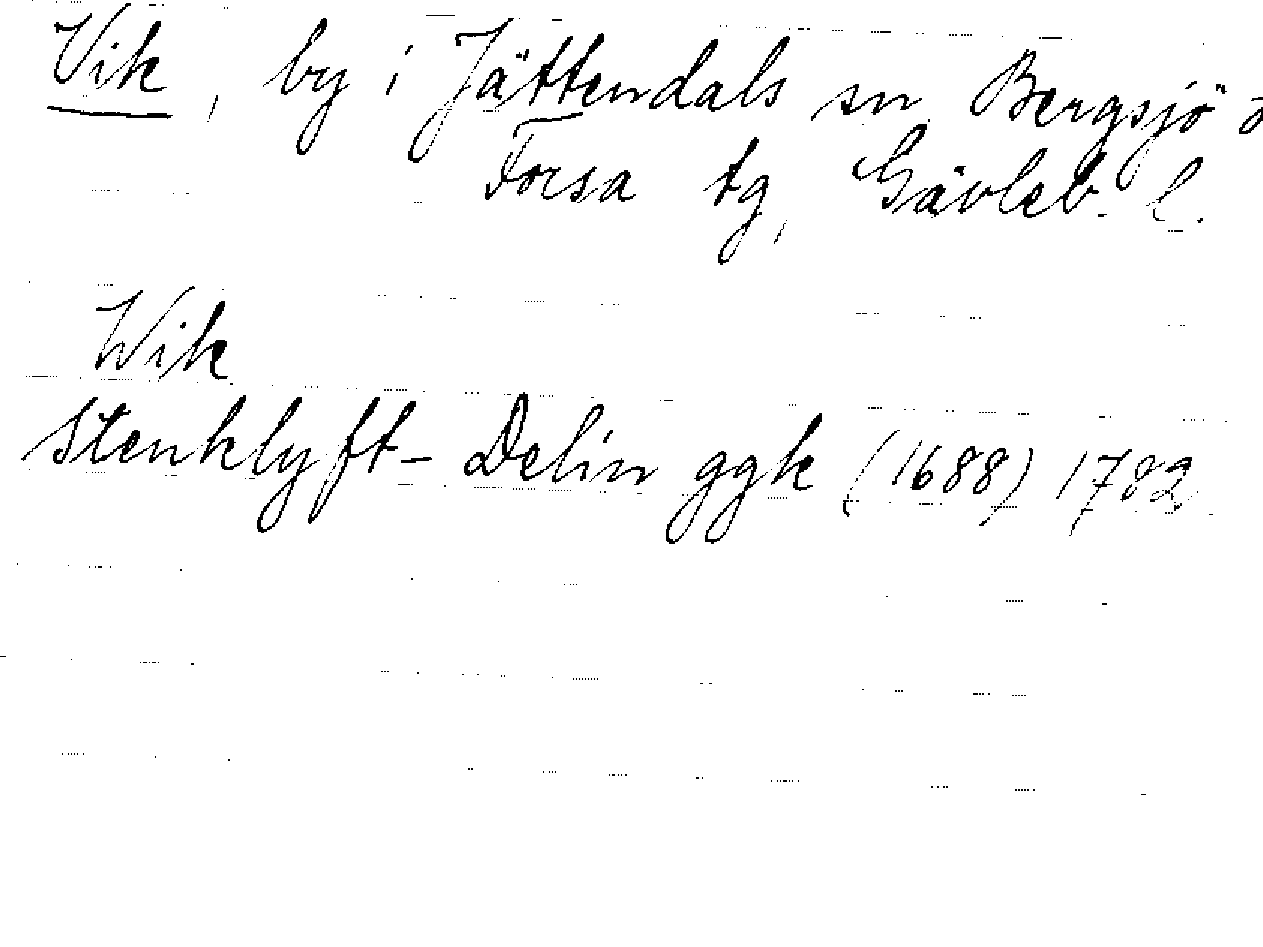 Vik, by i Jättendals sn Bergsjö o
Forsa tg, Gävleb. l.
Wik
Stenklyft- Delin ggk (1688) 1782